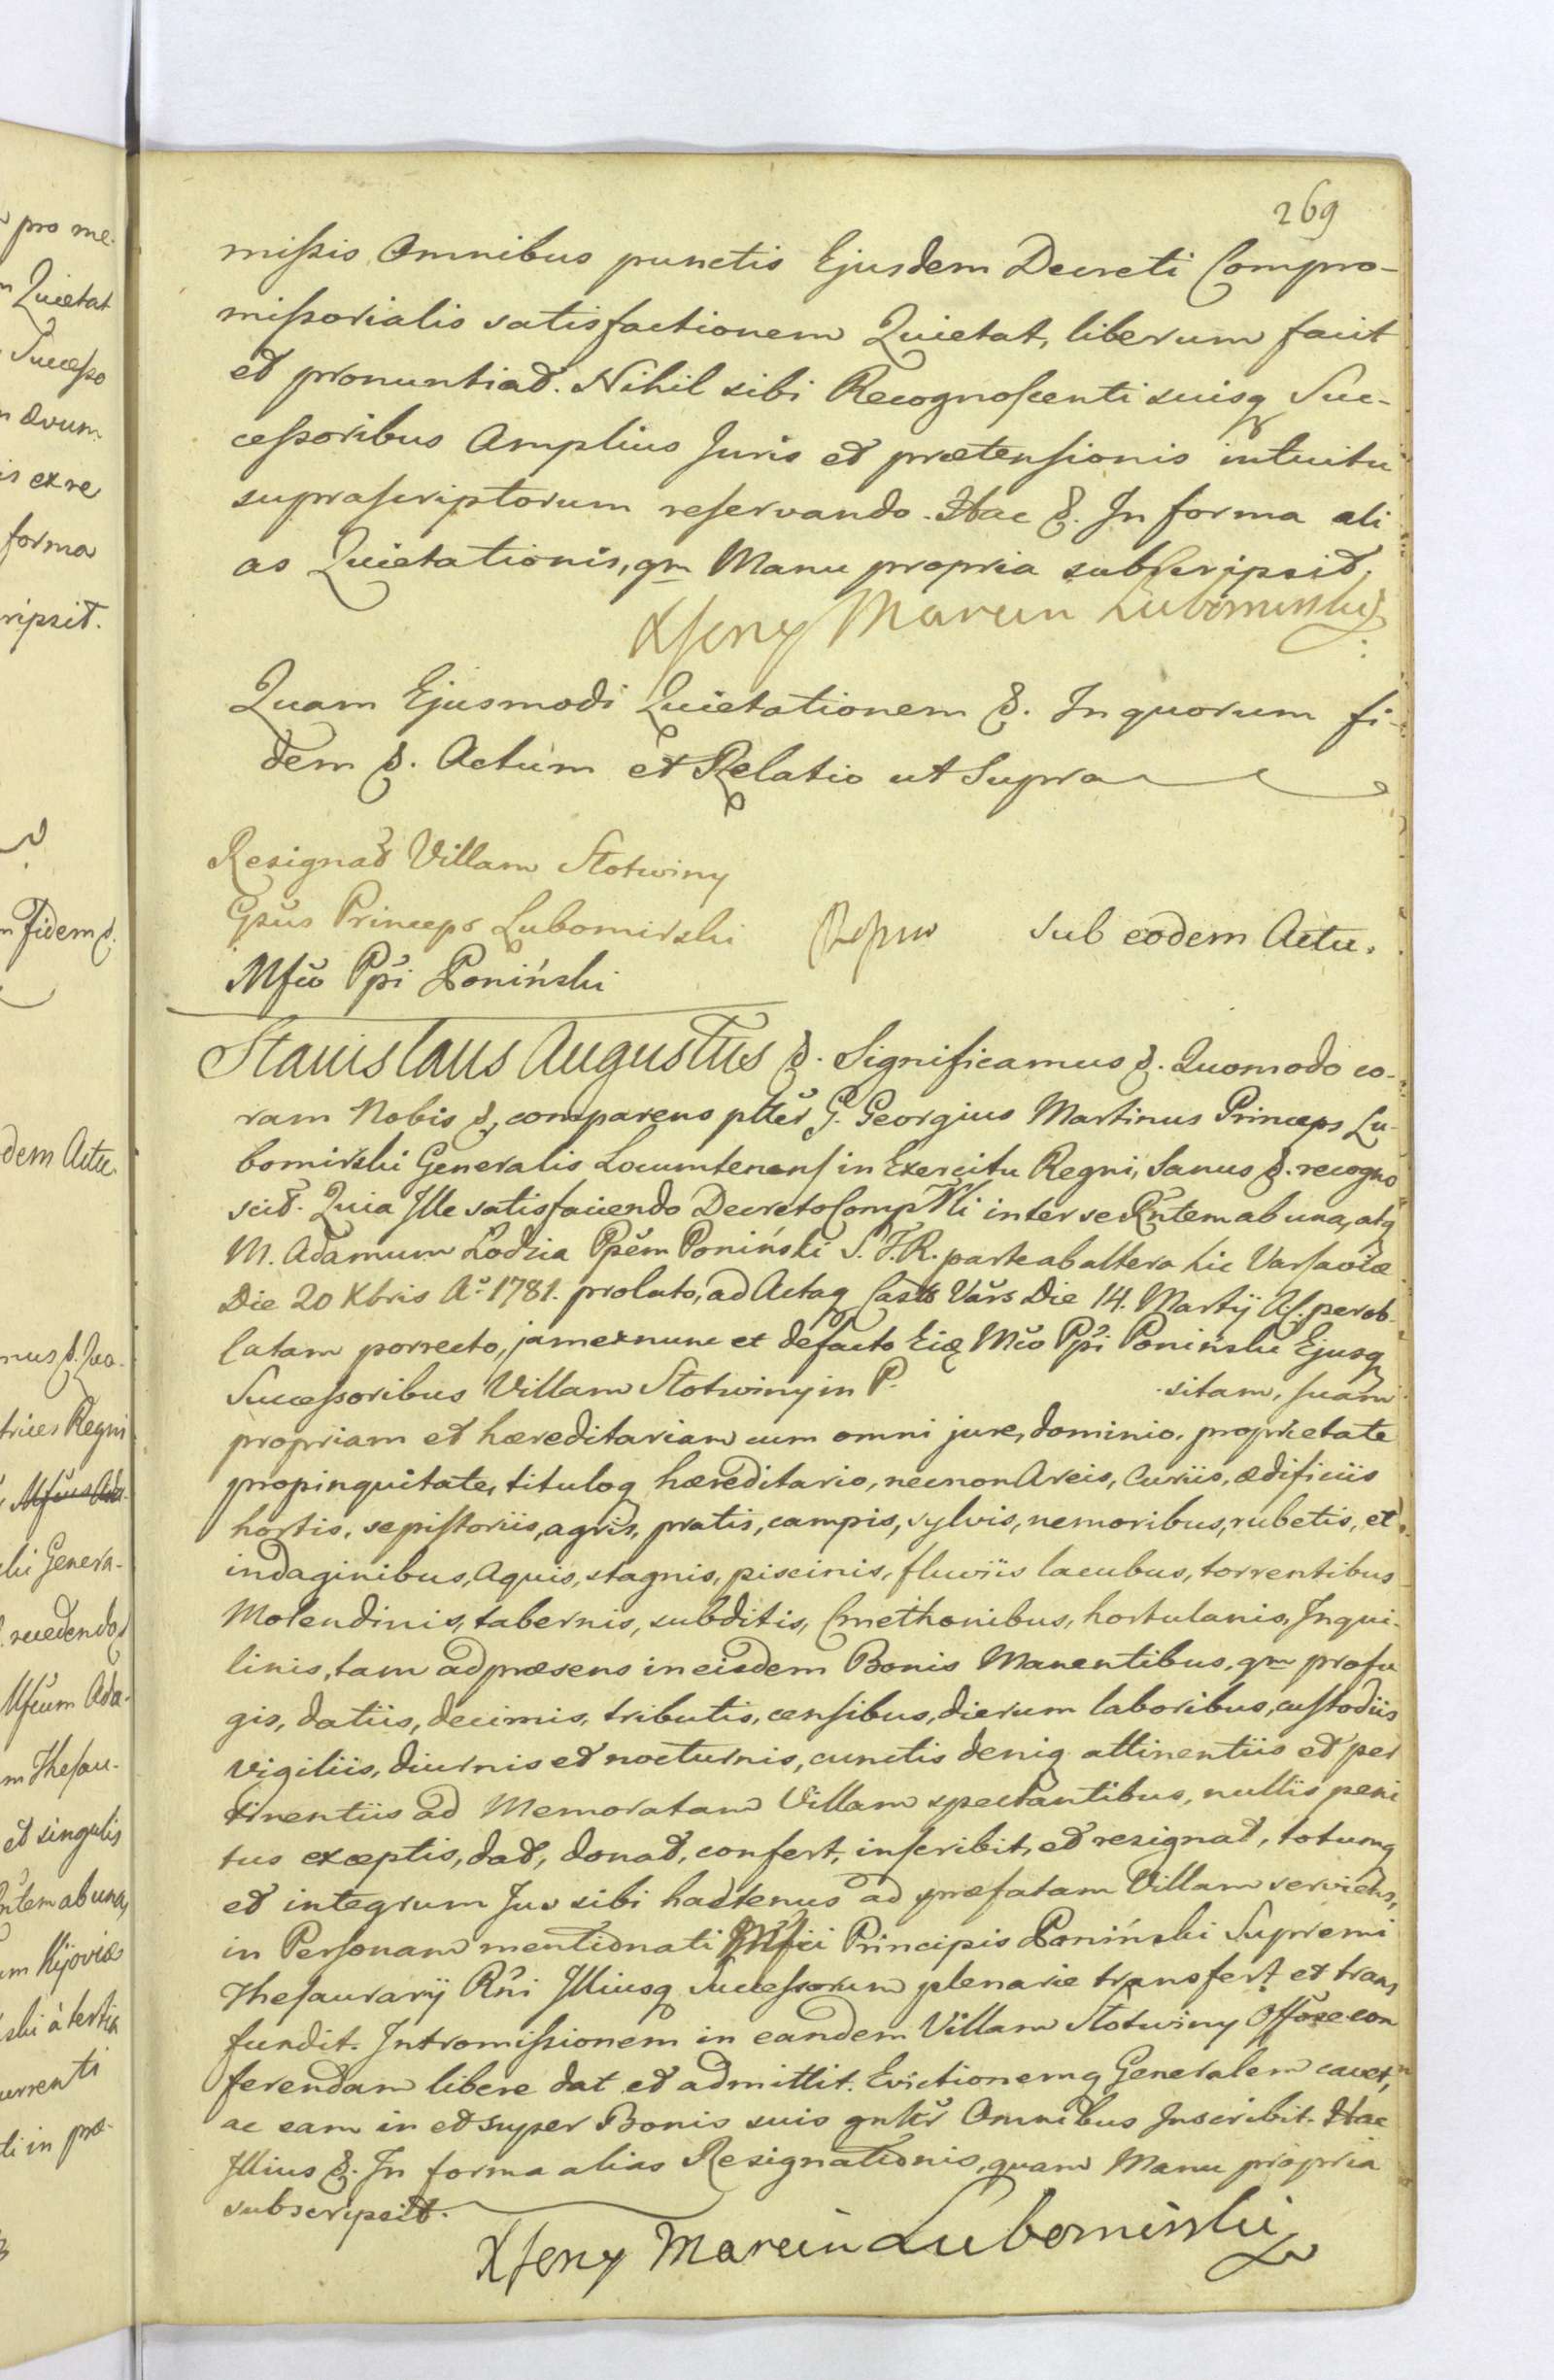 269
missis Omnibus punctis Ejusdem Decreti Compro-
missorialis satisfactionem Quietat, liberum facit
et pronuntiat. Nihil sibi Recognoscenti suisq Suc-
cessoribus Amplius Juris et prætensionis intuitu
suprascriptorum reservando. Hac &. In forma ali
as Quietationis, qm Manu propria subscripsit.
X Jerzy Marcin Lubomirski
Quam Ejusmodi Quietationem &. In quorum fi-
dem &. Actum et Relatio ut Supra
Resignat Villam Slotwiny
Gsus Princeps Lubomirski
sub eodem Actu.
Mfco Ppi Poniński
Stanislaus Augustus &. Significamus &. Quomodo co-
ram Nobis &, comparens ptter G. Georgius Martinus Princeps Lu-
bomirski Generalis Locumtenens in Exercitu Regni, Sanus &. recogno
scit. Quia Ille satisfaciendo Decreto Compllli inter se Rntem ab una, atq
M. Adamum Lodzia Ppem Poniński S. T. R. parte ab altera hic Varsaviæ
Die 20 Xbris Ao 1781. prolato, ad Actaq Casts Vars Die 14. Martij A. f. per ob-
latam porrecto, jam ex nunc et de facto Eiq Mco Ppi Poniński Ejusq
Successoribus Villam Slotwiny in P. sitam, suam
propriam et hæreditariam cum omni jure, dominio. proprietate
propinquitate, titulog hæreditario, necnon Areis, Curiis, ædificiis
hortis, sepistoriis, agris, pratis, campis, sylvis, nemoribus, rubetis, et
indaginibus, Aquis, stagnis, piscinis, fluviis lacubus, torrentibus
Molendinis, tabernis, subditis, Cmethonibus, hortulanis, Inqui-
linis, tam ad præsens in eisdem Bonis Manentibus, qm profu
gis, datiis, decimis, tributis, censibus, dierum laboribus, custodiis
vigiliis, diurnis et nocturnis, cunctis deniq attinentiis et per
tinentiis ad Memoratam Villam spectantibus, nullis peni
tus exceptis, dat, donat, confert, inscribit, et resignat, totumq
et integrum Jus sibi hactenus ad præfatam Villam serviens,
in Personam mentionati Mfici Principis Poniński Supremi
Thesaurarij Rni Illiusq Successorum plenarie transfert et trans
fundit. Intromissionem in eandem Villam Slotwiny Offose con
ferendam libere dat et admittit. Evictionemq Generalem cavet,
ac eam in et super Bonis suis gnltr Omnibus Inscribit. Hac
Illius &. In forma alias Resignationis, quam Manu propria
subscripsit.
X Jerzy Marcin Lubomirski